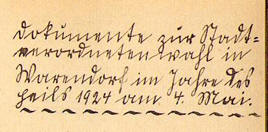 Dokumente zur Stadt-
verordnetenwahl in
Warendorf im Jahre des
Heils 1924 am 4. Mai.